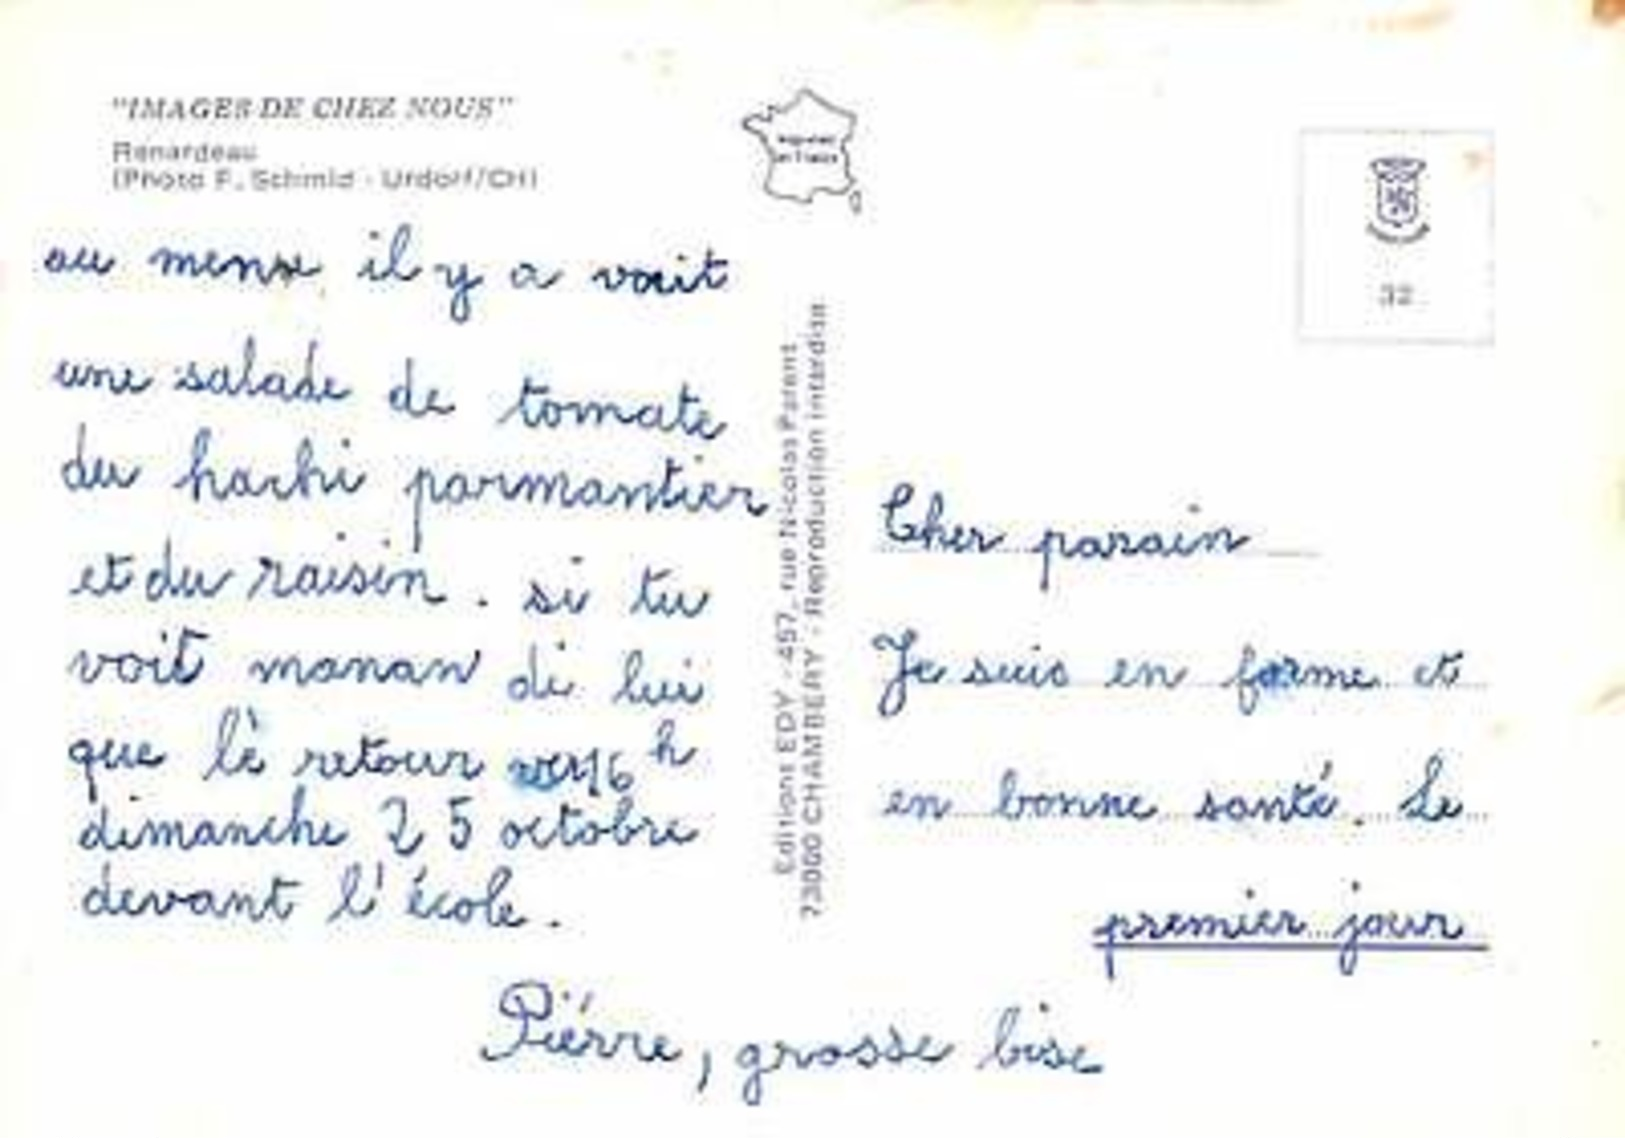 "IMAGES DE CHEZ NOUS"
Renardeau
(Photo F. Schmid - Urdorf/CH)
Imprimé
en France
32
Editions EDY - 457, rue Nicolas Parent
73000 CHAMBERY - Reproduction interdite
Cher parain
Je suis en forme et
en bonne santé. Le
premier jour
au menu il y a vait
une salade de tomate
du hachi parmantier
et du raisin. si tu
voit manan di lui
que lè retour 16 h
dimanche 25 octobre
devant l'école.
Piérre, grosse bise